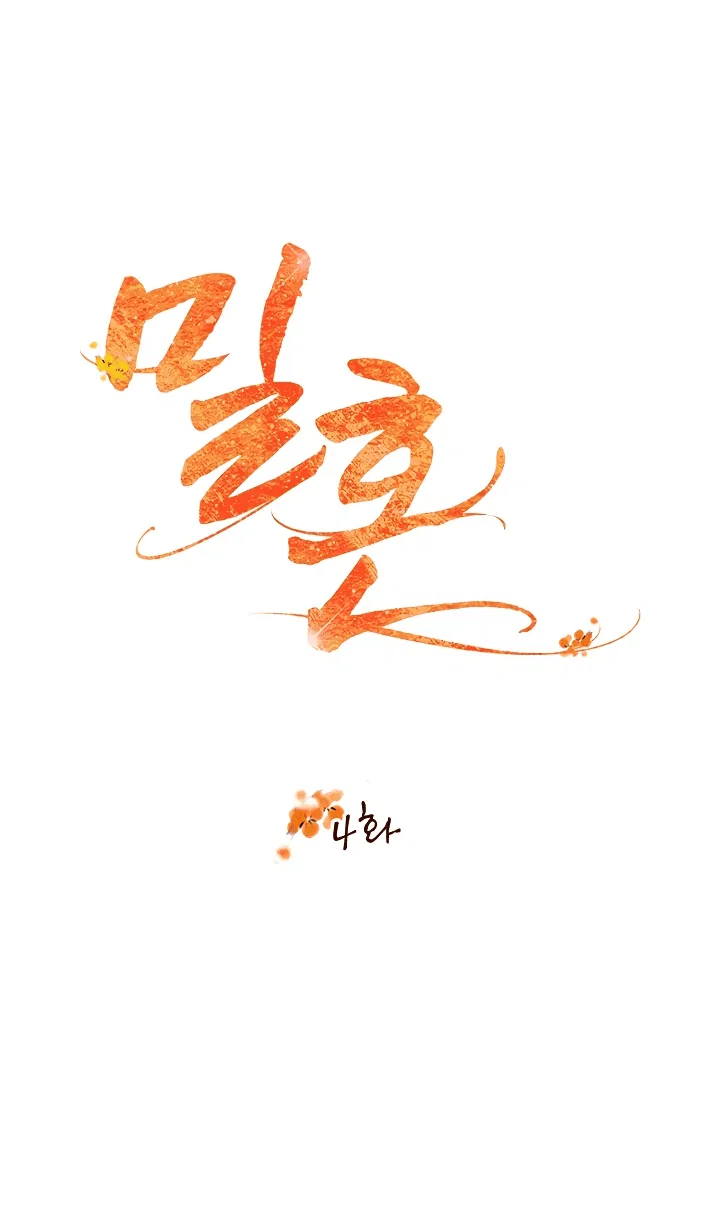 밀혼
4화